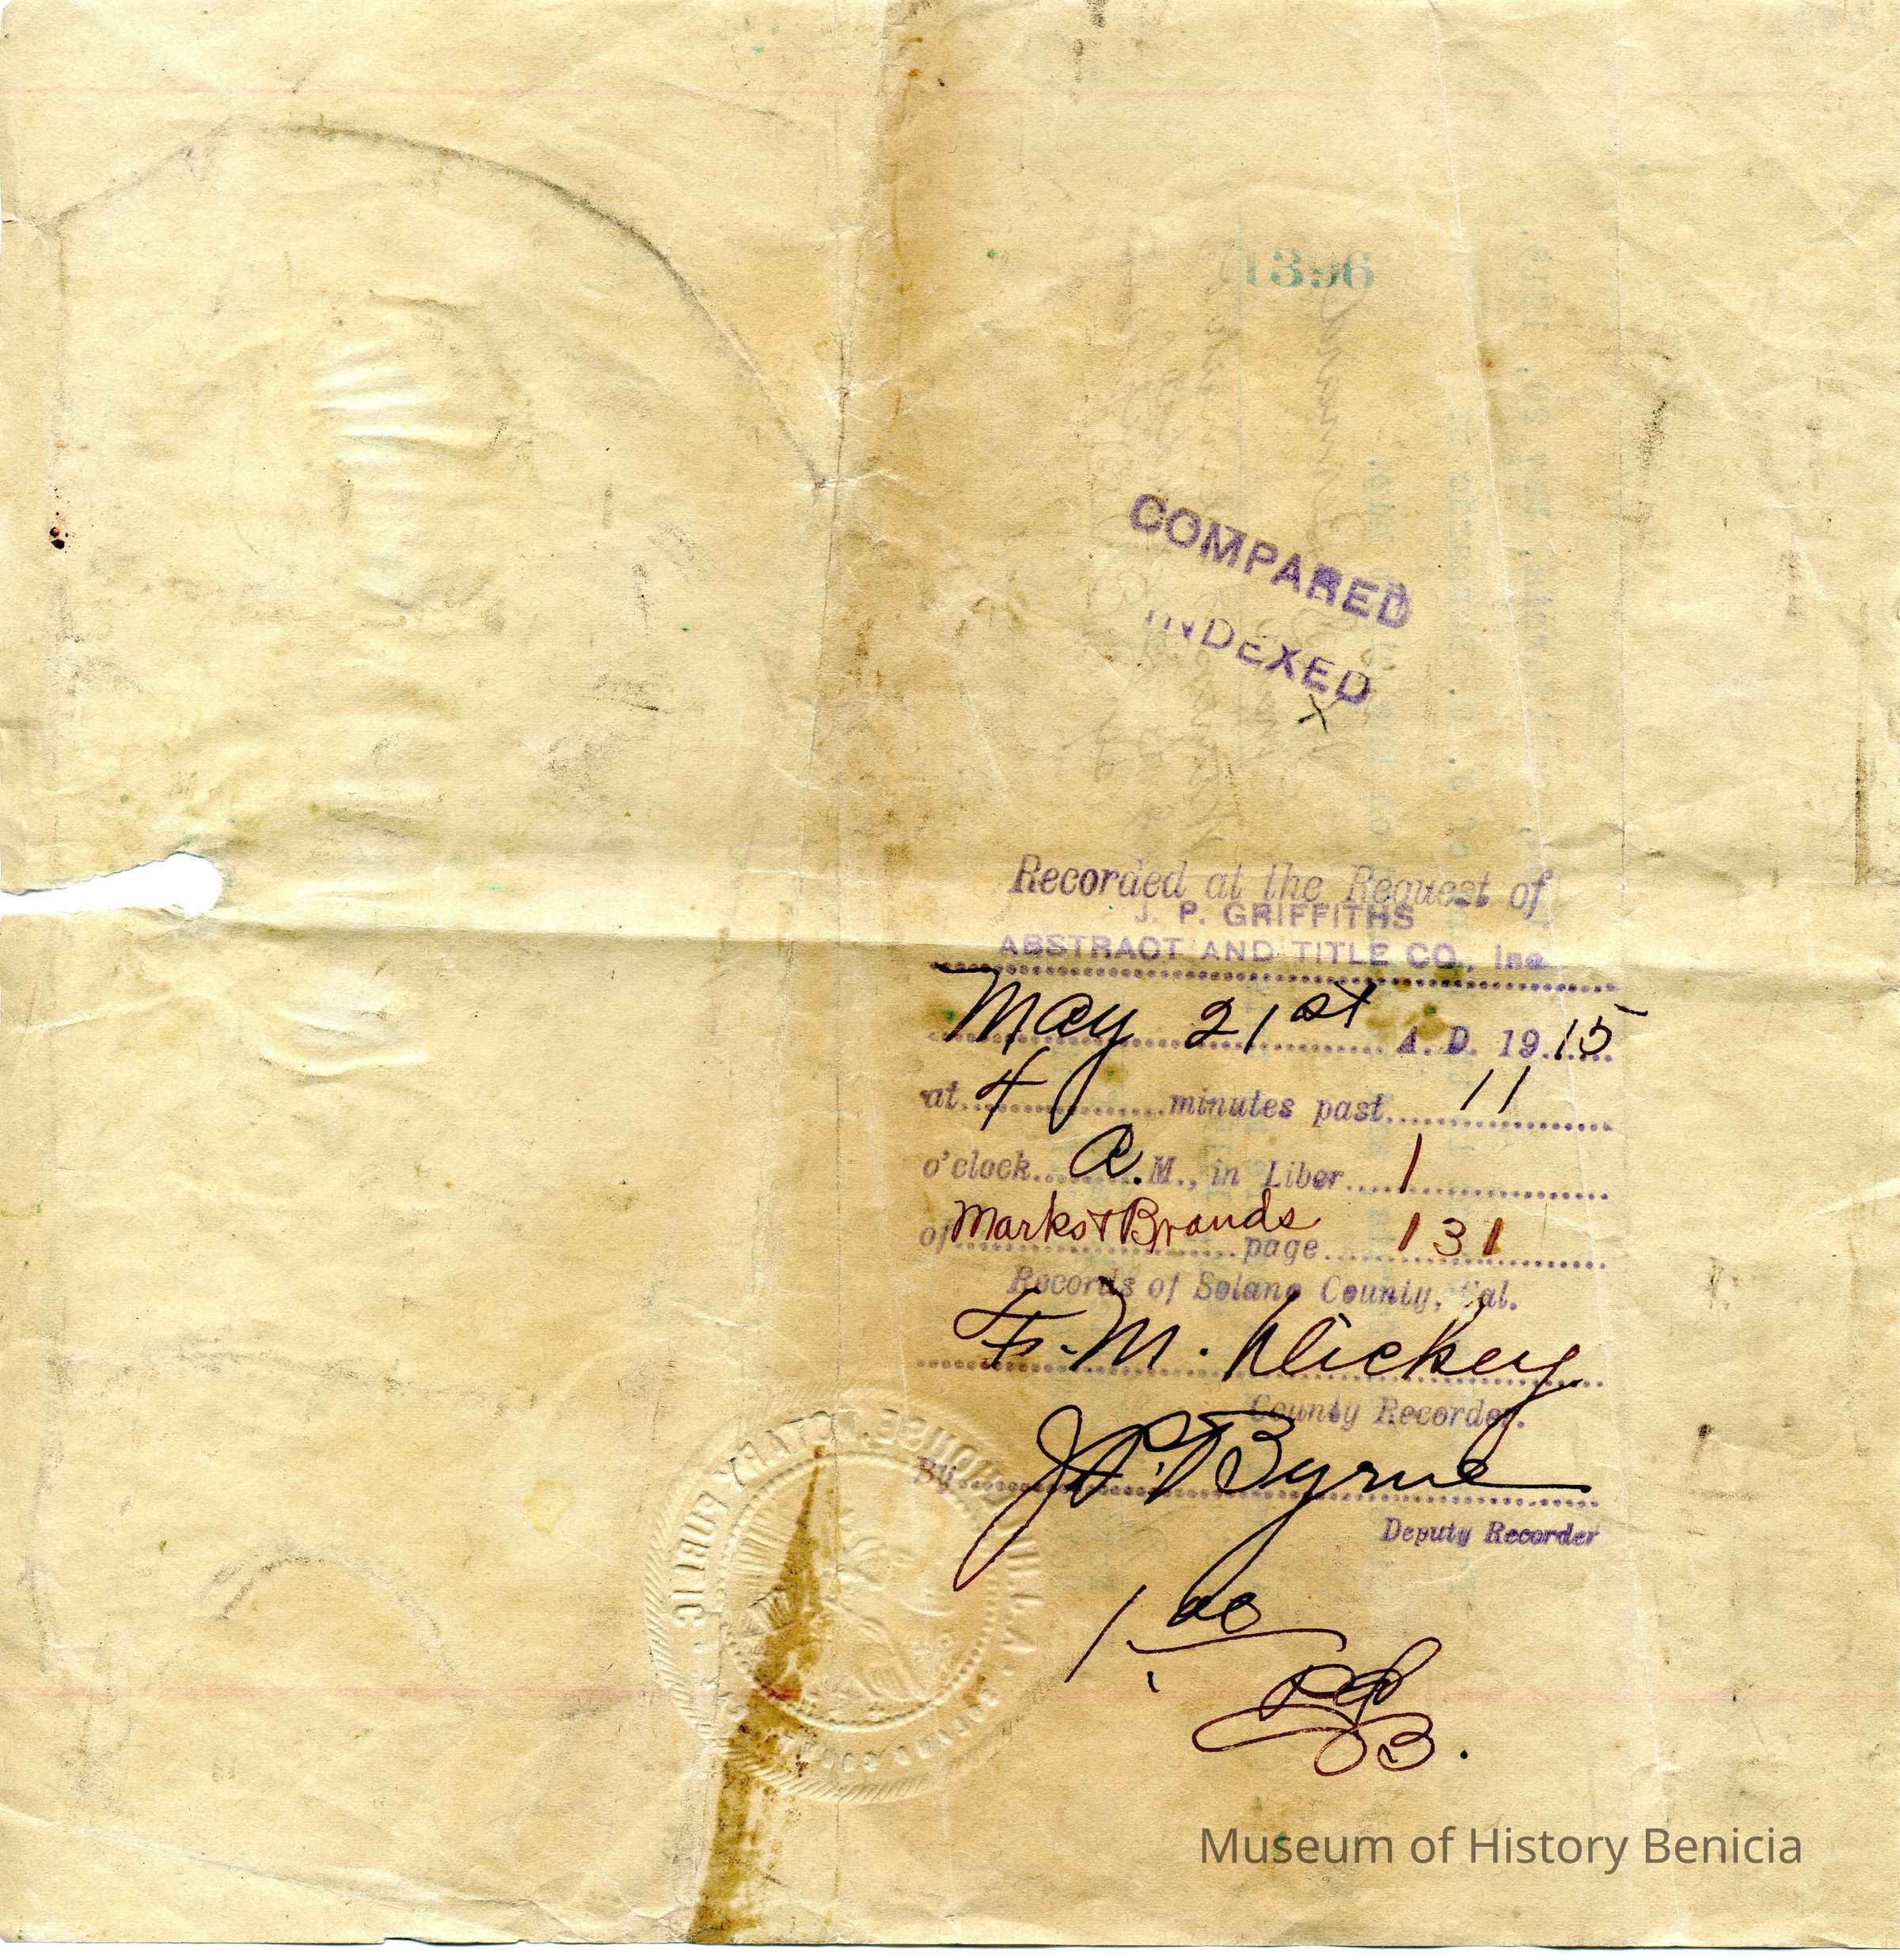 1396
COMPARED
INDEXED
X
Recorded at the Request of
J. P. GRIFFITHS
ABSTRACT AND TITLE CO., Inc
May 21st A. D. 1915
at 4 minutes past 11
o'clock A. M., in Liber 1
of Marks & Brands page 131
Records of Solano County, Cal.
F. M. Dickey
County Recorder.
By J. P. Byrne
Deputy Recorder
1.00
NOTARY PUBLIC
Museum of History Benicia